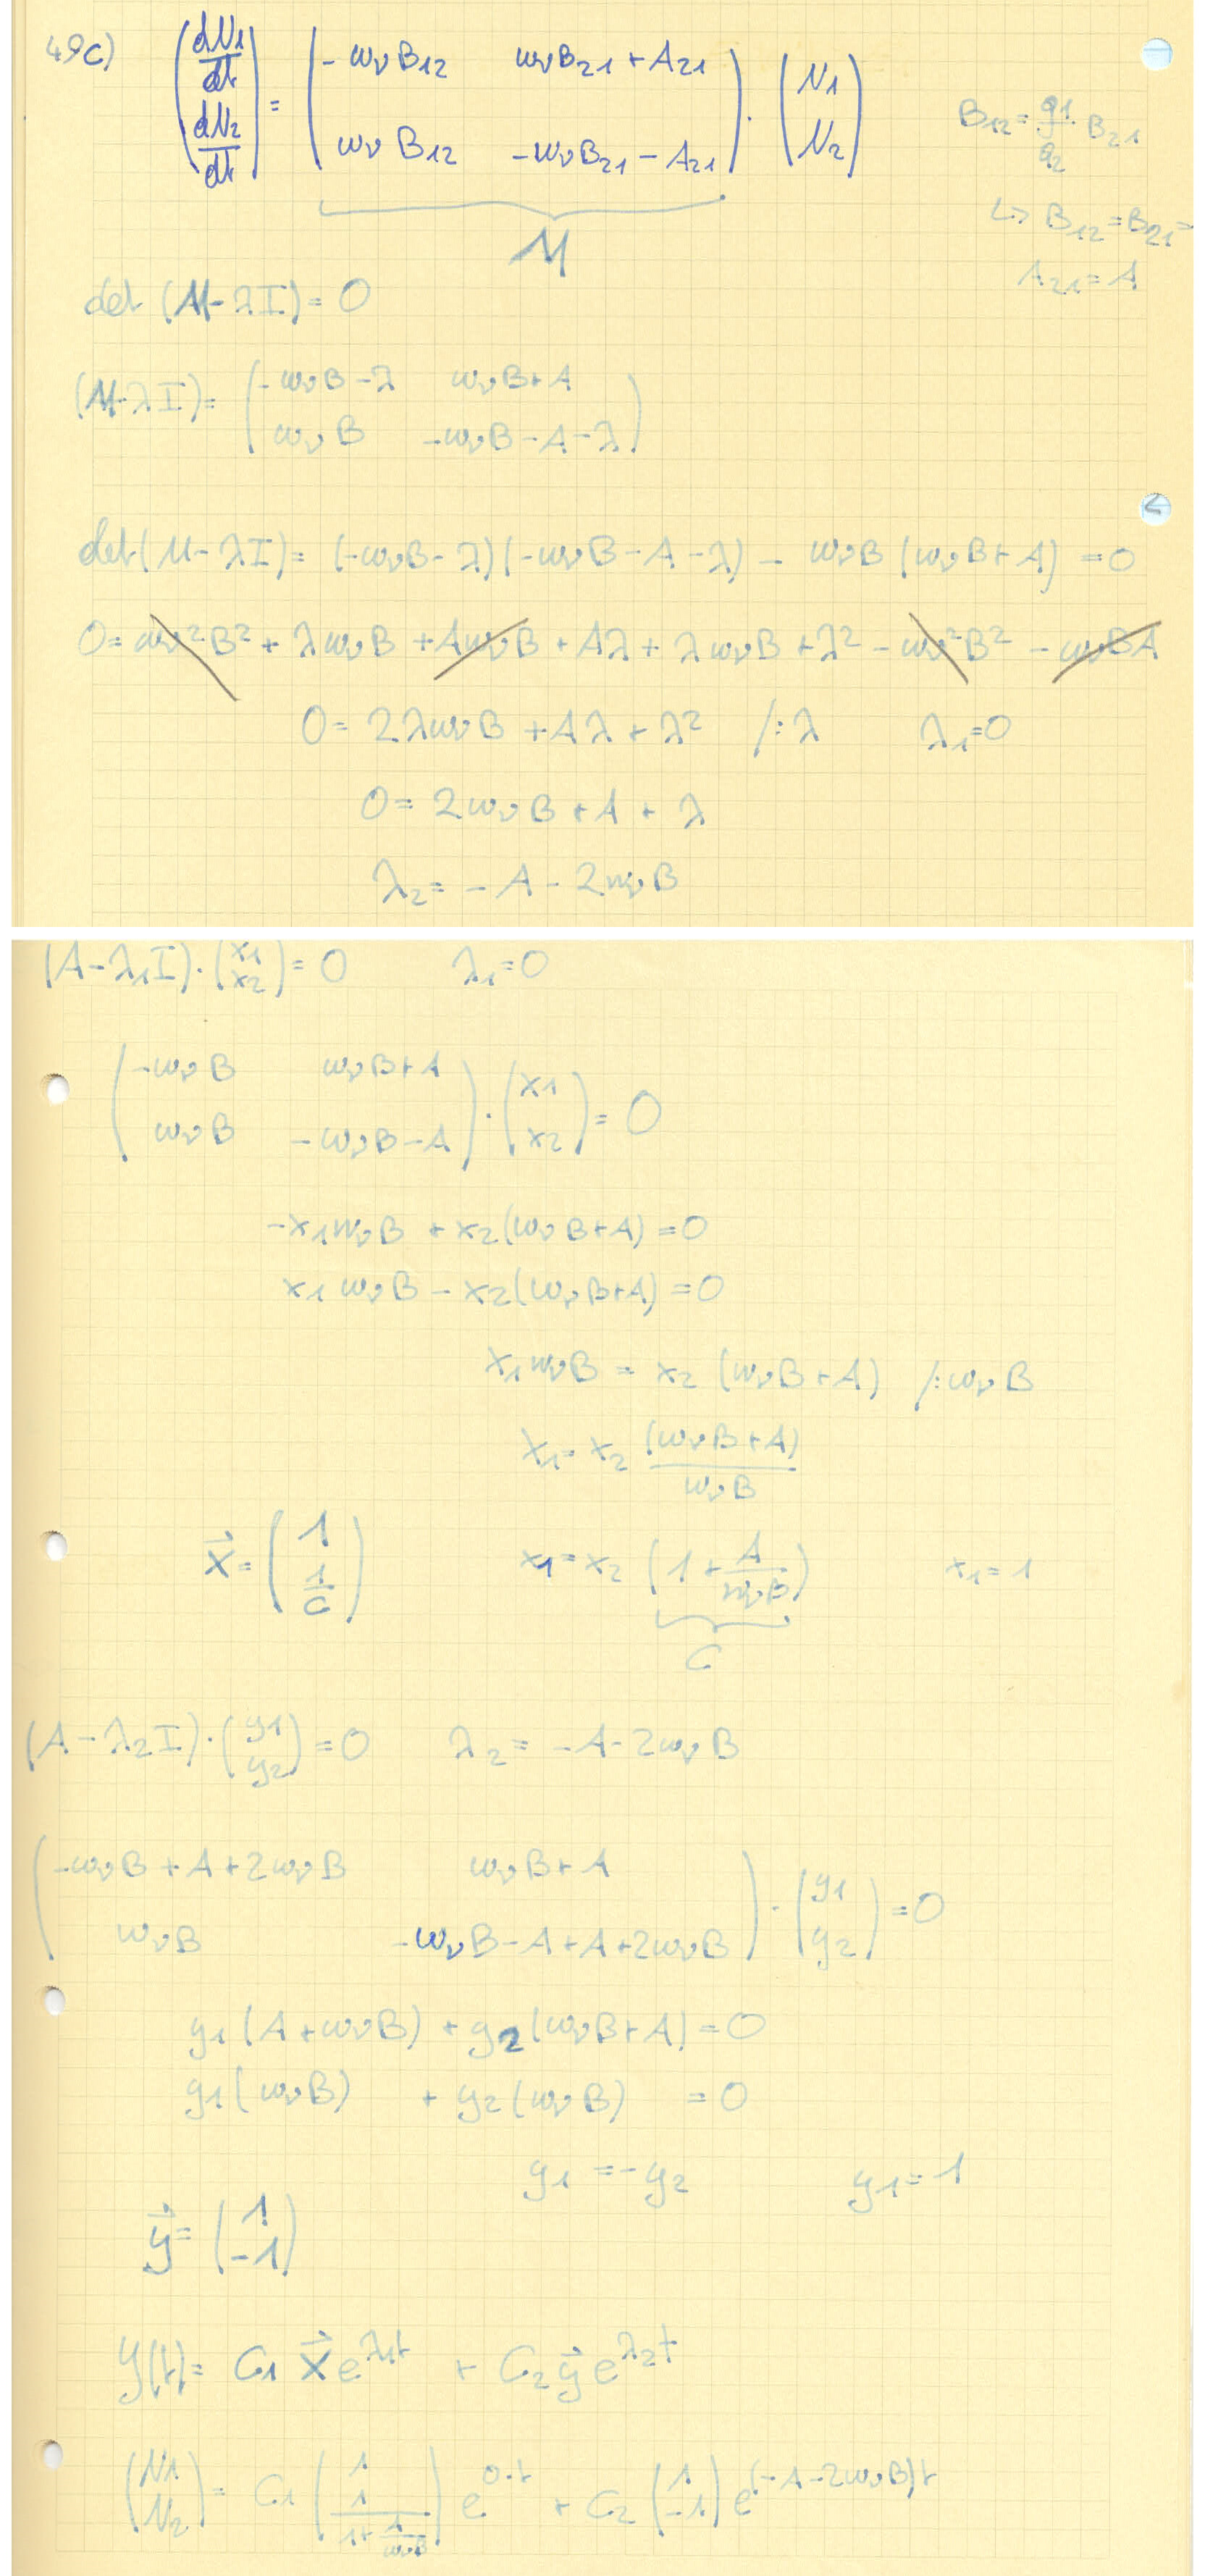 49c) (dN1/dt dN2/dt) = (-wνB12 wνB21+A21 wνB12 -wνB21-A21) · (N1 N2)
B12 = g1/g2 · B21
↳ B12 = B21 =
M
A21 = A
det (M-λI) = 0
(M-λI) = (-wνB-λ wνB+A wνB -wνB-A-λ)
det(M-λI) = (-wνB-λ)(-wνB-A-λ) - wνB (wνB+A) = 0
0 = wν²B² + λwνB + AwνB + Aλ + λwνB + λ² - wν²B² - wνBA
0 = 2λwνB + Aλ + λ² /:λ λ1=0
0 = 2wνB + A + λ
λ2 = -A - 2wνB
(A-λ1I)·(x1 x2) = 0 λ1=0
(-wνB wνB+A wνB -wνB-A) · (x1 x2) = 0
-x1wνB + x2(wνB+A) = 0
x1wνB - x2(wνB+A) = 0
x1wνB = x2 (wνB+A) /:wνB
x1 = x2 (wνB+A)/wνB
x⃗ = (1 1/C) x1 = x2 (1 + A/wνB) x1 = 1
C
(A-λ2I)·(y1 y2) = 0 λ2 = -A-2wνB
(-wνB+A+2wνB wνB+A wνB -wνB-A+A+2wνB) · (y1 y2) = 0
y1(A+wνB) + y2(wνB+A) = 0
y1(wνB) + y2(wνB) = 0
y1 = -y2 y1 = 1
y⃗ = (1 -1)
y(t) = C1 x⃗ e^λ1t + C2 y⃗ e^λ2t
(N1 N2) = C1 (1 1/(1+A/wνB)) e^0·t + C2 (1 -1) e^(-A-2wνB)t